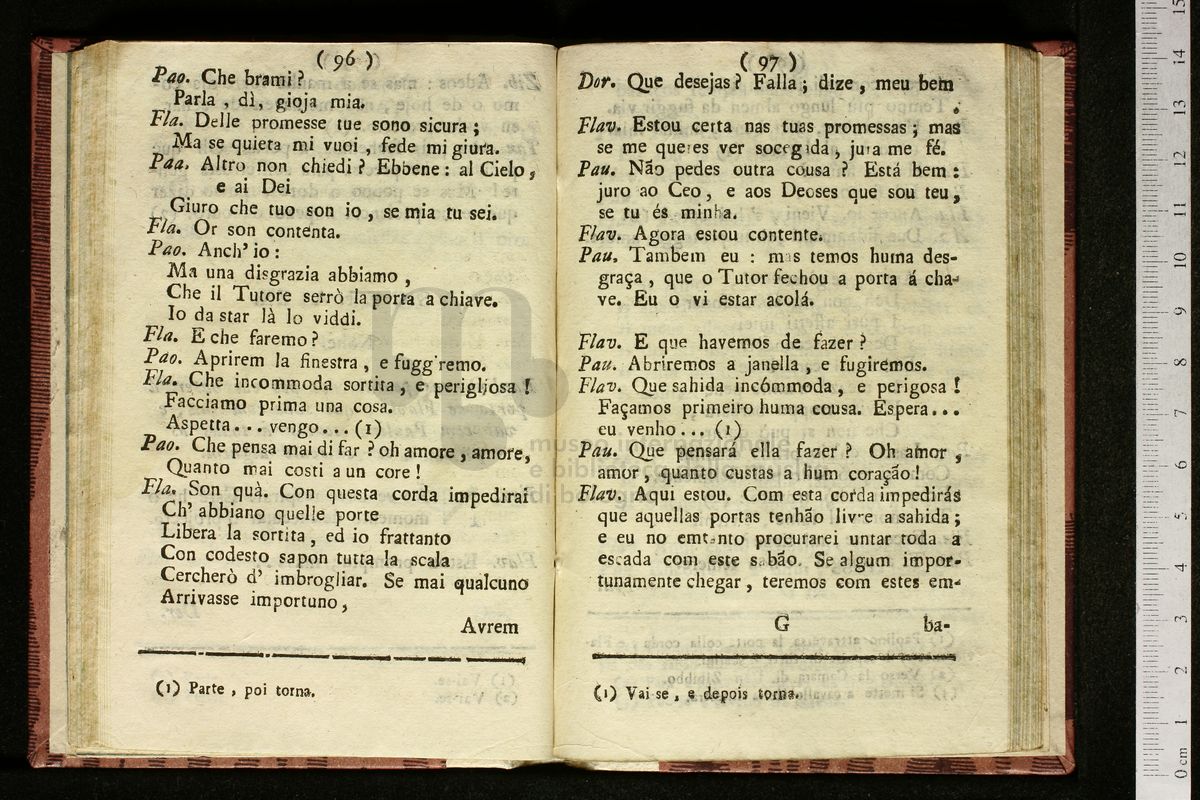 ( 96 )
Pao. Che brami?
Parla, dì, gioja mia.
Fla. Delle promesse tue sono sicura;
Ma se quieta mi vuoi, fede mi giura.
Paa. Altro non chiedi? Ebbene: al Cielo,
e ai Dei
Giuro che tuo son io, se mia tu sei.
Fla. Or son contenta.
Pao. Anch' io:
Ma una disgrazia abbiamo,
Che il Tutore serrò la porta a chiave.
Io da star là lo viddi.
Fla. E che faremo?
Pao. Aprirem la finestra, e fugg'remo.
Fla. Che incommoda sortita, e perigliosa!
Facciamo prima una cosa.
Aspetta... vengo... (1)
Pao. Che pensa mai di far? oh amore, amore,
Quanto mai costi a un core!
Fla. Son quà. Con questa corda impedirai
Ch' abbiano quelle porte
Libera la sortita, ed io frattanto
Con codesto sapon tutta la scala
Cercherò d' imbrogliar. Se mai qualcuno
Arrivasse importuno,
Avrem
(1) Parte, poi torna.
( 97 )
Dor. Que desejas? Falla; dize, meu bem
.
Flav. Estou certa nas tuas promessas; mas
se me queres ver socegada, jura me fé.
Pau. Não pedes outra cousa? Está bem:
juro ao Ceo, e aos Deoses que sou teu,
se tu és minha.
Flav. Agora estou contente.
Pau. Tambem eu: mas temos huma des-
graça, que o Tutor fechou a porta á cha-
ve. Eu o vi estar acolá.
Flav. E que havemos de fazer?
Pau. Abriremos a janella, e fugiremos.
Flav. Que sahida incómmoda, e perigosa!
Façamos primeiro huma cousa. Espera...
eu venho... (1)
Pau. Que pensará ella fazer? Oh amor,
amor, quanto custas a hum coração!
Flav. Aqui estou. Com esta corda impedirás
que aquellas portas tenhão livre a sahida;
e eu no emtanto procurarei untar toda a
escada com este sabão. Se algum impor-
tunamente chegar, teremos com estes em-
G ba-
(1) Vai se, e depois torna.